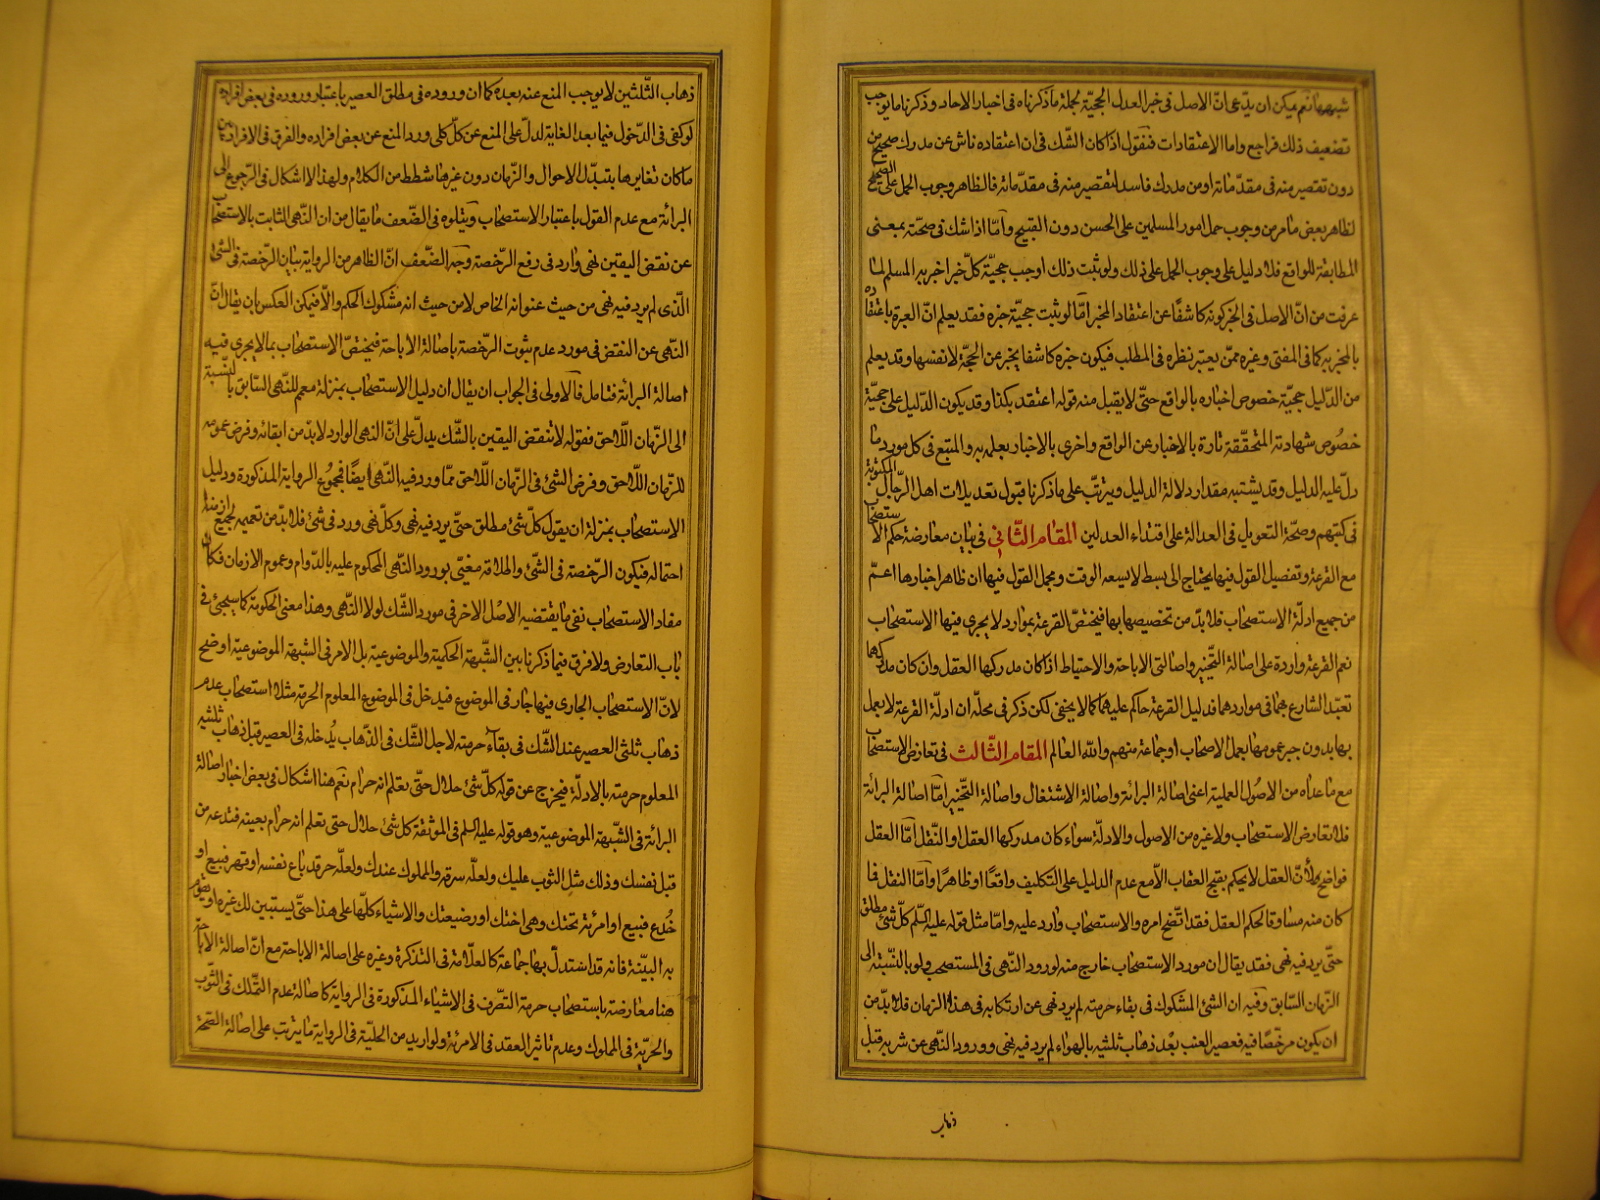 شبهها نعم يمكن ان يدّعى انّ الاصل فى خبر العدل الحجيّة لجملة ما ذكرناه فى اخبار الاحاد وذكرنا ما يوجب
تضعيف ذلك فراجع واما الاعتقادات فنقول اذا كان الشّك فى ان اعتقاده ناش عن مدرك صحيح من
دون تقصير منه فى مقدّماته او من مدرك فاسد لتقصير منه فى مقدّماته فالظاهر وجوب الحمل على الصّحيح
لظاهر بعض ما مر من وجوب حمل امور المسلمين على الحسن دون القبيح وامّا اذا شك فى صحّته بمعنى
المطابقة للواقع فلا دليل على وجوب الحمل على ذلك ولو ثبت ذلك اوجب حجيّة كلّ خبر اخبر به المسلم لما
عرفت من انّ الاصل فى الخبر كونه كاشفًا عن اعتقاد المخبر امّا لو ثبت حجيّة خبره فقد يعلم انّ العبرة باعتقاده
بالمخبر به كما فى المفتى وغيره ممّن يعتبر نظره فى المطلب فيكون خبره كاشفا يخبر عن الحجّة لا نفسها وقد يعلم
من الدّليل حجيّة خصوص اخباره بالواقع حتّى لا يقبل منه قوله اعتقد بكذا وقد يكون الدّليل على حجيّة
خصُوص شهادته المتحقّقة تارة بالاخبار عن الواقع واخرى بالاخبار بعلمه به والمتبع فى كل مورد ما
دلّ عليه الدليل وقد يشتبه مقدار دلالة الدليل ويترتّب على ما ذكرنا قبول تعديلات اهل الرّجال المكتوبة
فى كتبهم وصحّة التعويل فى العدالة على اقتداء العدلين المقام الثّانى فى بيان معارضة حكم الاستصحاب
مع القرعة وتفصيل القول فيها يحتاج الى بسط لا يسعه الوقت ومجمل القول فيها ان ظاهر اخبارها اعمّ
من جميع ادلّة الاستصحاب فلا بدّ من تخصيصها بها فيختصّ القرعة بموارد لا يجرى فيها الاستصحاب
نعم القرعة واردة على اصالة التّخيير واصالتى الاباحة والاحتياط اذا كان مدركها العقل وان كان مدركهما
تعبّد الشارع بهما فى مواردهما فدليل القرعة حاكم عليهما كما لا يخفى لكن ذكر فى محلّه ان ادلّة القرعة لا يعمل
بها بدون جبر عمومها بعمل الاصحاب او جماعة منهم والله العالم المقام الثّالث فى تعارض الاستصحاب
مع ما عداه من الاصُول العملية اعنى اصالة البرائة واصالة الاشتغال واصالة التّخيير امّا اصالة البرائة
فلا تعارض الاستصحاب ولا غيره من الاصول والادلّة سواء كان مدركها العقل او النّقل امّا العقل
فواضح لأنّ العقل لا يحكم بقبح العقاب الّا مع عدم الدليل على التكليف واقعًا او ظاهرًا وامّا النقل فما
كان منه مساوقا لحكم العقل فقد اتّضح امره والاستصحاب وارد عليه وامّا مثل قوله عليه السّلم كلّ شئ مطلق
حتّى يرد فيه نهى فقد يقال ان مورد الاستصحاب خارج منه لورود النّهى فى المستصحب ولو بالنّسبة الى
الزّمان السّابق وفيه ان الشئ المشكوك فى بقاء حرمته لم يرد نهى عن ارتكابه فى هذا الزمان فلا بدّ من
ان يكون مرخّصًا فيه فعصير العنب بعد ذهاب ثلثيه بالهواء لم يرد فيه نهى وورود النّهى عن شربه قبل
ذهاب
ذهاب الثّلثين لا يوجب المنع عنه بعده كما ان وروده فى مطلق العصير باعتبار وروده فى بعض افراده
لو كفى فى الدّخول فيما بعد الغاية لدلّ على المنع عن كلّ كلى ورد المنع عن بعض افراده والفرق فى الافراد بين
ما كان تغايرها بتبدّل الاحوال والزّمان دون غيرها شطط من الكلام ولهذا لا اشكال فى الرّجوع الى
البرائة مع عدم القول باعتبار الاستصحاب ويتلوه فى الضّعف ما يقال من ان النّهى الثابت بالاستصحاب
عن نقض اليقين نهى وارد فى رفع الرّخصة وجه الضّعف انّ الظاهر من الرواية بيان الرّخصة فى الشئ
الّذى لم يرد فيه نهى من حيث عنوانه الخاص لا من حيث انه مشكوك الحكم والّا فيمكن العكس بان يقال انّ
النّهى عن النقض فى مورد عدم ثبوت الرّخصة باصالة الاباحة فيختصّ الاستصحاب بما لا يجرى فيه
اصالة البرائة فتامل فالاولى فى الجواب ان يقال ان دليل الاستصحاب بمنزلة معمم للنّهى السّابق بالنّسبة
الى الزّمان اللّاحق فقوله لا تنقض اليقين بالشّك يدلّ على انّ النهى الوارد لا بدّ من ابقائه وفرض عمومه
للزّمان اللّاحق وفرض الشئ فى الزّمان اللّاحق ممّا ورد فيه النّهى ايضًا فمجمُوع الرواية المذكورة ودليل
الاستصحاب بمنزلة ان يقول كلّ شئ مطلق حتّى يرد فيه نهى وكلّ نهى ورد فى شئ فلا بدّ من تعميمه لجميع ازمنة
احتماله فيكون الرّخصة فى الشئ واطلاقه مغيّى بورود النّهى المحكوم عليه بالدّوام وعموم الازمان فكان
مفاد الاستصحاب نفى ما يقتضيه الاصل الاخر فى مورد الشّك لولا النّهى وهذا معنى الحكومة كما سيجئ فى
باب التعارض ولا فرق فيما ذكرنا بين الشّبهة الحكمية والموضوعية بل الامر فى الشبهة الموضوعية اوضح
لانّ الاستصحاب الجارى فيها جار فى الموضوع فيدخل فى الموضوع المعلوم الحرمة مثلا استصحاب عدم
ذهاب ثلثى العصير عند الشّك فى بقاء حرمته لاجل الشّك فى الذّهاب يُدخله فى العصير قبل ذهاب ثلثيه
المعلوم حرمته بالادلّة فيخرج عن قوله كلّ شئ حلال حتّى تعلم انه حرام نعم هنا اشكال فى بعض اخبار اصالة
البرائة فى الشّبهة الموضوعية وهو قوله عليه السلم فى الموثقة كل شئ حلال حتى تعلم انه حرام بعينه فتدعه من
قبل نفسك وذلك مثل الثوب عليك ولعلّه سرقة والمملوك عندك ولعلّه حر قد باع نفسه او قهر فبيع او
خُدع فبيع او امرئة تحتك وهى اختك او رضيعتك والاشياء كلّها على هذا حتّى يستبين لك غيره او تقوم
به البيّنة فانه قد استدلّ بها جماعة كالعلّامة فى التذكرة وغيره على اصالة الاباحة مع انّ اصالة الاباحة
هنا معارضة باستصحاب حرمة التصّرف فى الاشياء المذكورة فى الرواية كاصالة عدم التملّك فى الثوب
والحريّة فى المملوك وعدم تاثير العقد فى الامرئة ولو اريد من الحلية فى الرواية ما يترتب على اصالة الصّحة